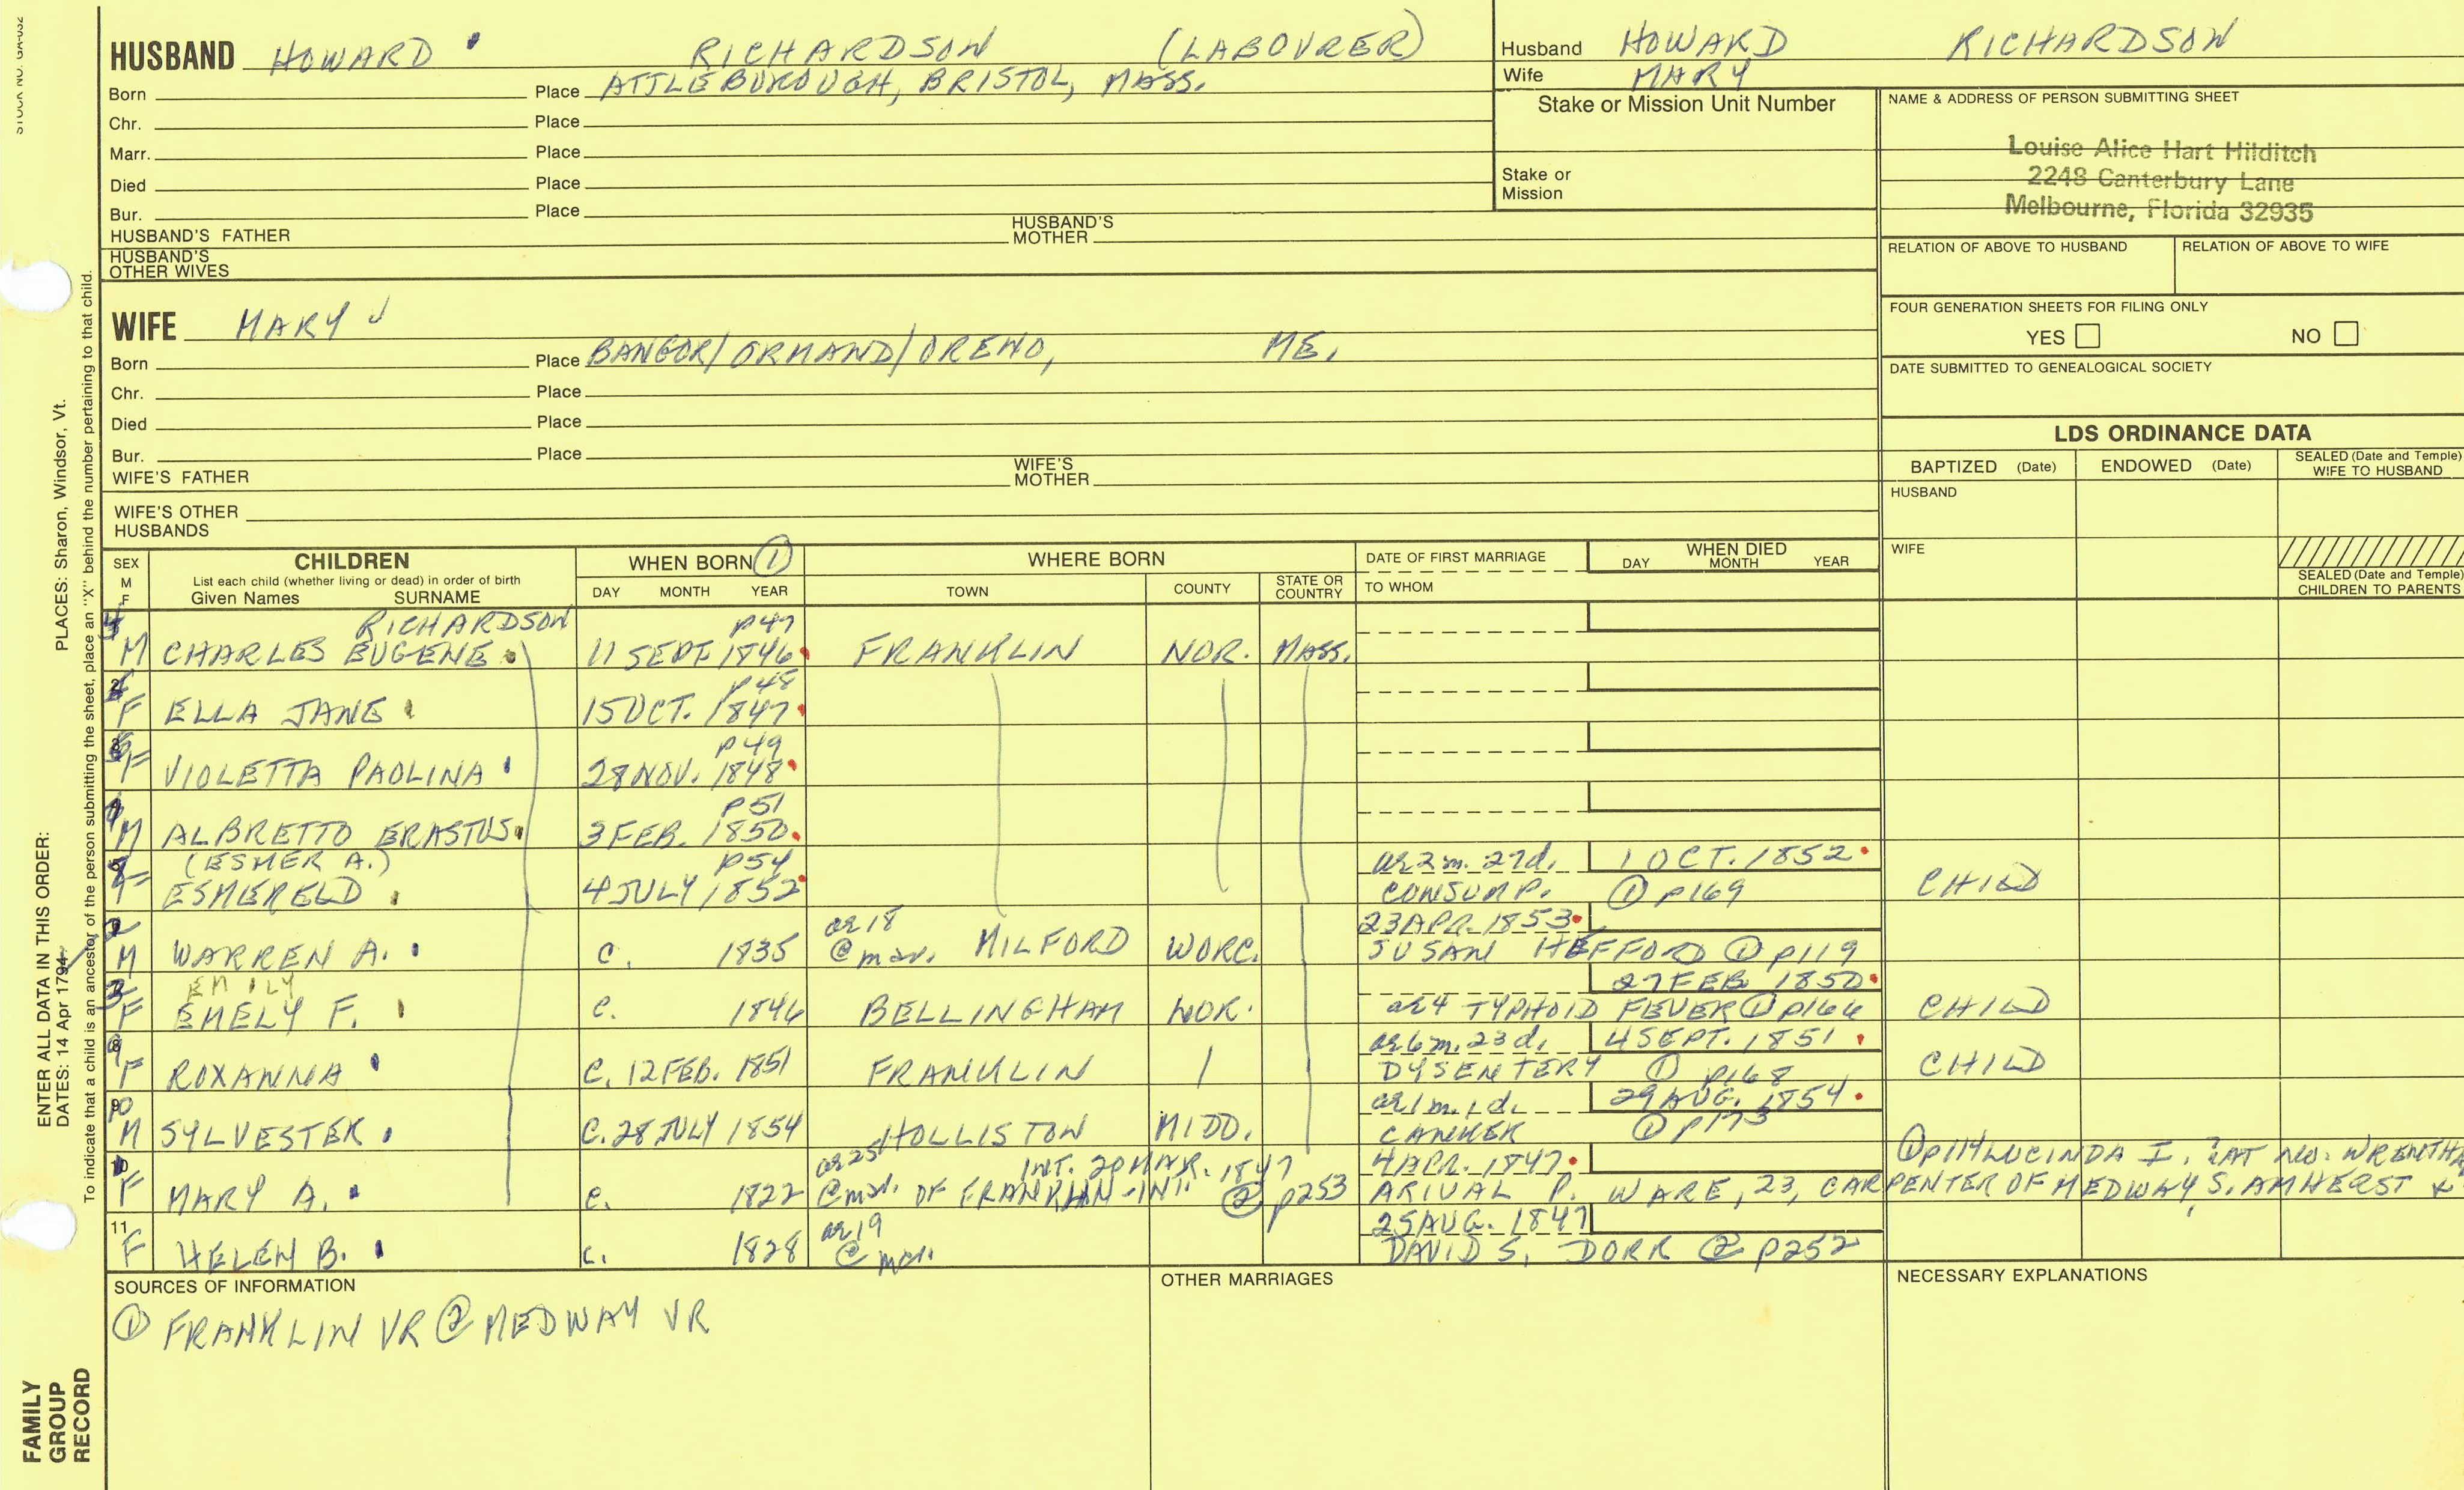 STOCK NO. GA-032
HUSBAND HOWARD RICHARDSON (LABOURER)
Born Place ATTLEBUROUGH, BRISTOL, MASS.
Chr. Place
Marr. Place
Died Place
Bur. Place
HUSBAND'S FATHER HUSBAND'S MOTHER
HUSBAND'S OTHER WIVES
Husband HOWARD RICHARDSON
Wife MARY
Stake or Mission Unit Number
Stake or Mission
NAME & ADDRESS OF PERSON SUBMITTING SHEET
Louise Alice Hart Hilditch
2248 Canterbury Lane
Melbourne, Florida 32935
RELATION OF ABOVE TO HUSBAND RELATION OF ABOVE TO WIFE
FOUR GENERATION SHEETS FOR FILING ONLY
YES NO
DATE SUBMITTED TO GENEALOGICAL SOCIETY
WIFE MARY
Born Place BANGOR/ORMAND/ORENO, ME.
Chr. Place
Died Place
Bur. Place
WIFE'S FATHER WIFE'S MOTHER
WIFE'S OTHER HUSBANDS
LDS ORDINANCE DATA
BAPTIZED (Date) ENDOWED (Date) SEALED (Date and Temple) WIFE TO HUSBAND
HUSBAND
WIFE
SEALED (Date and Temple) CHILDREN TO PARENTS
SEX M F
CHILDREN
List each child (whether living or dead) in order of birth
Given Names SURNAME
WHEN BORN ①
DAY MONTH YEAR
WHERE BORN
TOWN COUNTY STATE OR COUNTRY
DATE OF FIRST MARRIAGE
TO WHOM
WHEN DIED
DAY MONTH YEAR
RICHARDSON p47
M CHARLES EUGENE 11 SEPT. 1846 FRANKLIN NOR. MASS.
p48
F ELLA JANE 15 OCT. 1847
p49
F VIOLETTA PAOLINA 28 NOV. 1848
p51
M ALBRETTO ERASTUS 3 FEB. 1850
(ESMER A.) p54 ae 2m. 27d. 1 OCT. 1852
F ESMERELD 4 JULY 1852 CONSUMP. ① p169 CHILD
ae 18 23 APR. 1853
M WARREN A. c. 1835 @ mar. MILFORD WORC. SUSAN HEFFORD ① p119
EMILY 27 FEB. 1850
F EMELY F. c. 1846 BELLINGHAM NOR. ae 4 TYPHOID FEVER ① p166 CHILD
ae 6m. 23d. 4 SEPT. 1851
F ROXANNA c. 12 FEB. 1851 FRANKLIN DYSENTERY ① p168 CHILD
ae 1m. 1d. 29 AUG. 1854
M SYLVESTER c. 28 JULY 1854 HOLLISTON MIDD. CANKER ① p173
ae 25 INT. 20 MAR. 1847 4 APR. 1847 ① p114 LUCINDA I. ?AT NO. WRENTHA
F MARY A. c. 1822 @ mar. OF FRANKLIN-INT. ② p253 ARIVAL P. WARE, 23, CARPENTER OF MEDWAY S. AMHERST &
11 ae 19 25 AUG. 1847
F HELEN B. c. 1828 @ mar. DAVID S. DORR ② p252
SOURCES OF INFORMATION
① FRANKLIN VR ② MEDWAY VR
OTHER MARRIAGES
NECESSARY EXPLANATIONS
ENTER ALL DATA IN THIS ORDER:
DATES: 14 Apr 1794 PLACES: Sharon, Windsor, Vt.
To indicate that a child is an ancestor of the person submitting the sheet, place an "X" behind the number pertaining to that child.
FAMILY
GROUP
RECORD